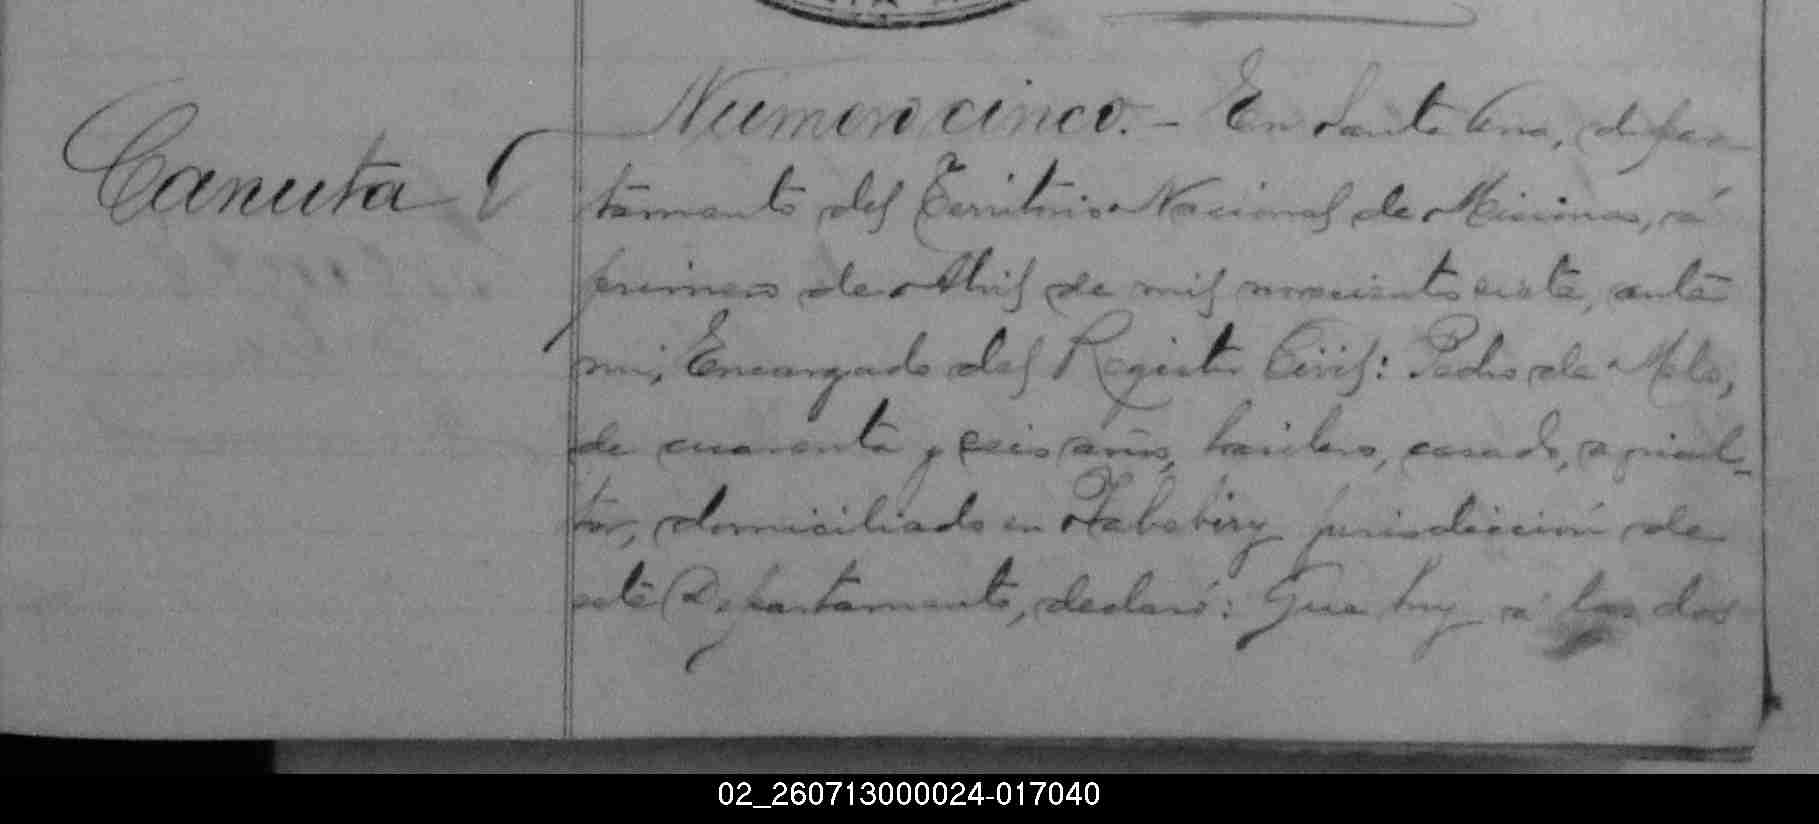 Canuta
Numero cinco. - En Santa Ana, depar
tamento del Territorio Nacional de Misiones, á
primero de Abril de mil novecientos siete, ante
mi, Encargado del Registro Civil: Pedro de Melo,
de cuarenta y seis años, brasilero, casado, agricul-
tor, domiciliado en Yabebiry jurisdicción de
este Departamento, declaró: Que hoy á las dos
02_260713000024-017040